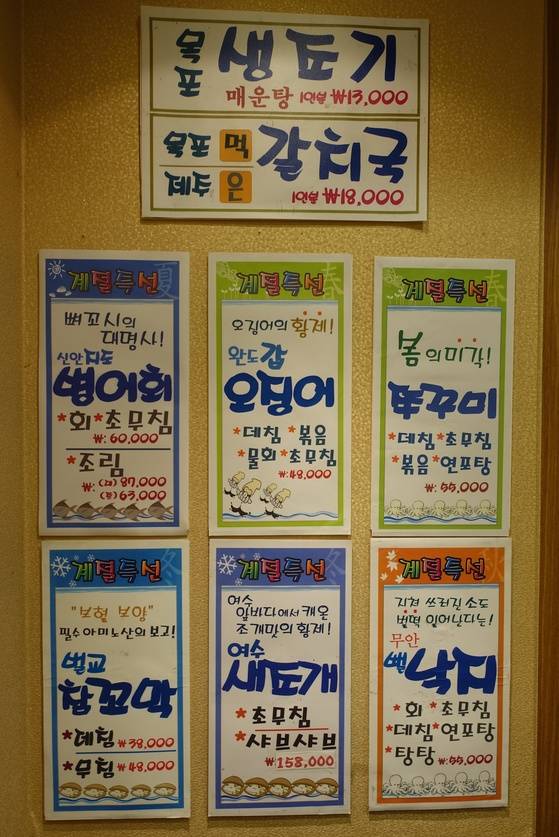 목포 생조기
매운탕 1인분 ₩13,000
목포 먹 갈치국
제주 은 1인분 ₩18,000
계절특선 夏
뼈꼬시의
대명사!
신안지도
병어회
*회 *초무침
₩:60,000
*조림
₩:(대) 87,000
(중) 63,000
계절특선 春
오징어의 황제!
완도 갑
오징어
*데침 *볶음
*물회 *초무침
₩:48,000
계절특선 春
봄의 미각!
쭈꾸미
*데침 *초무침
*볶음 *연포탕
₩:55,000
계절특선 冬
"보혈 보양"
필수아미노산의 보고!
벌교
참꼬막
*데침 ₩38,000
*무침 ₩48,000
계절특선 冬
여수
앞바다에서 캐온
조개맛의 황제!
여수
새조개
*초무침
*샤브샤브
₩158,000
계절특선 秋
지쳐 쓰러진 소도
벌떡 일어난다는!
무안
뻘낙지
*회 *초무침
*데침 *연포탕
*탕탕 ₩:55,000